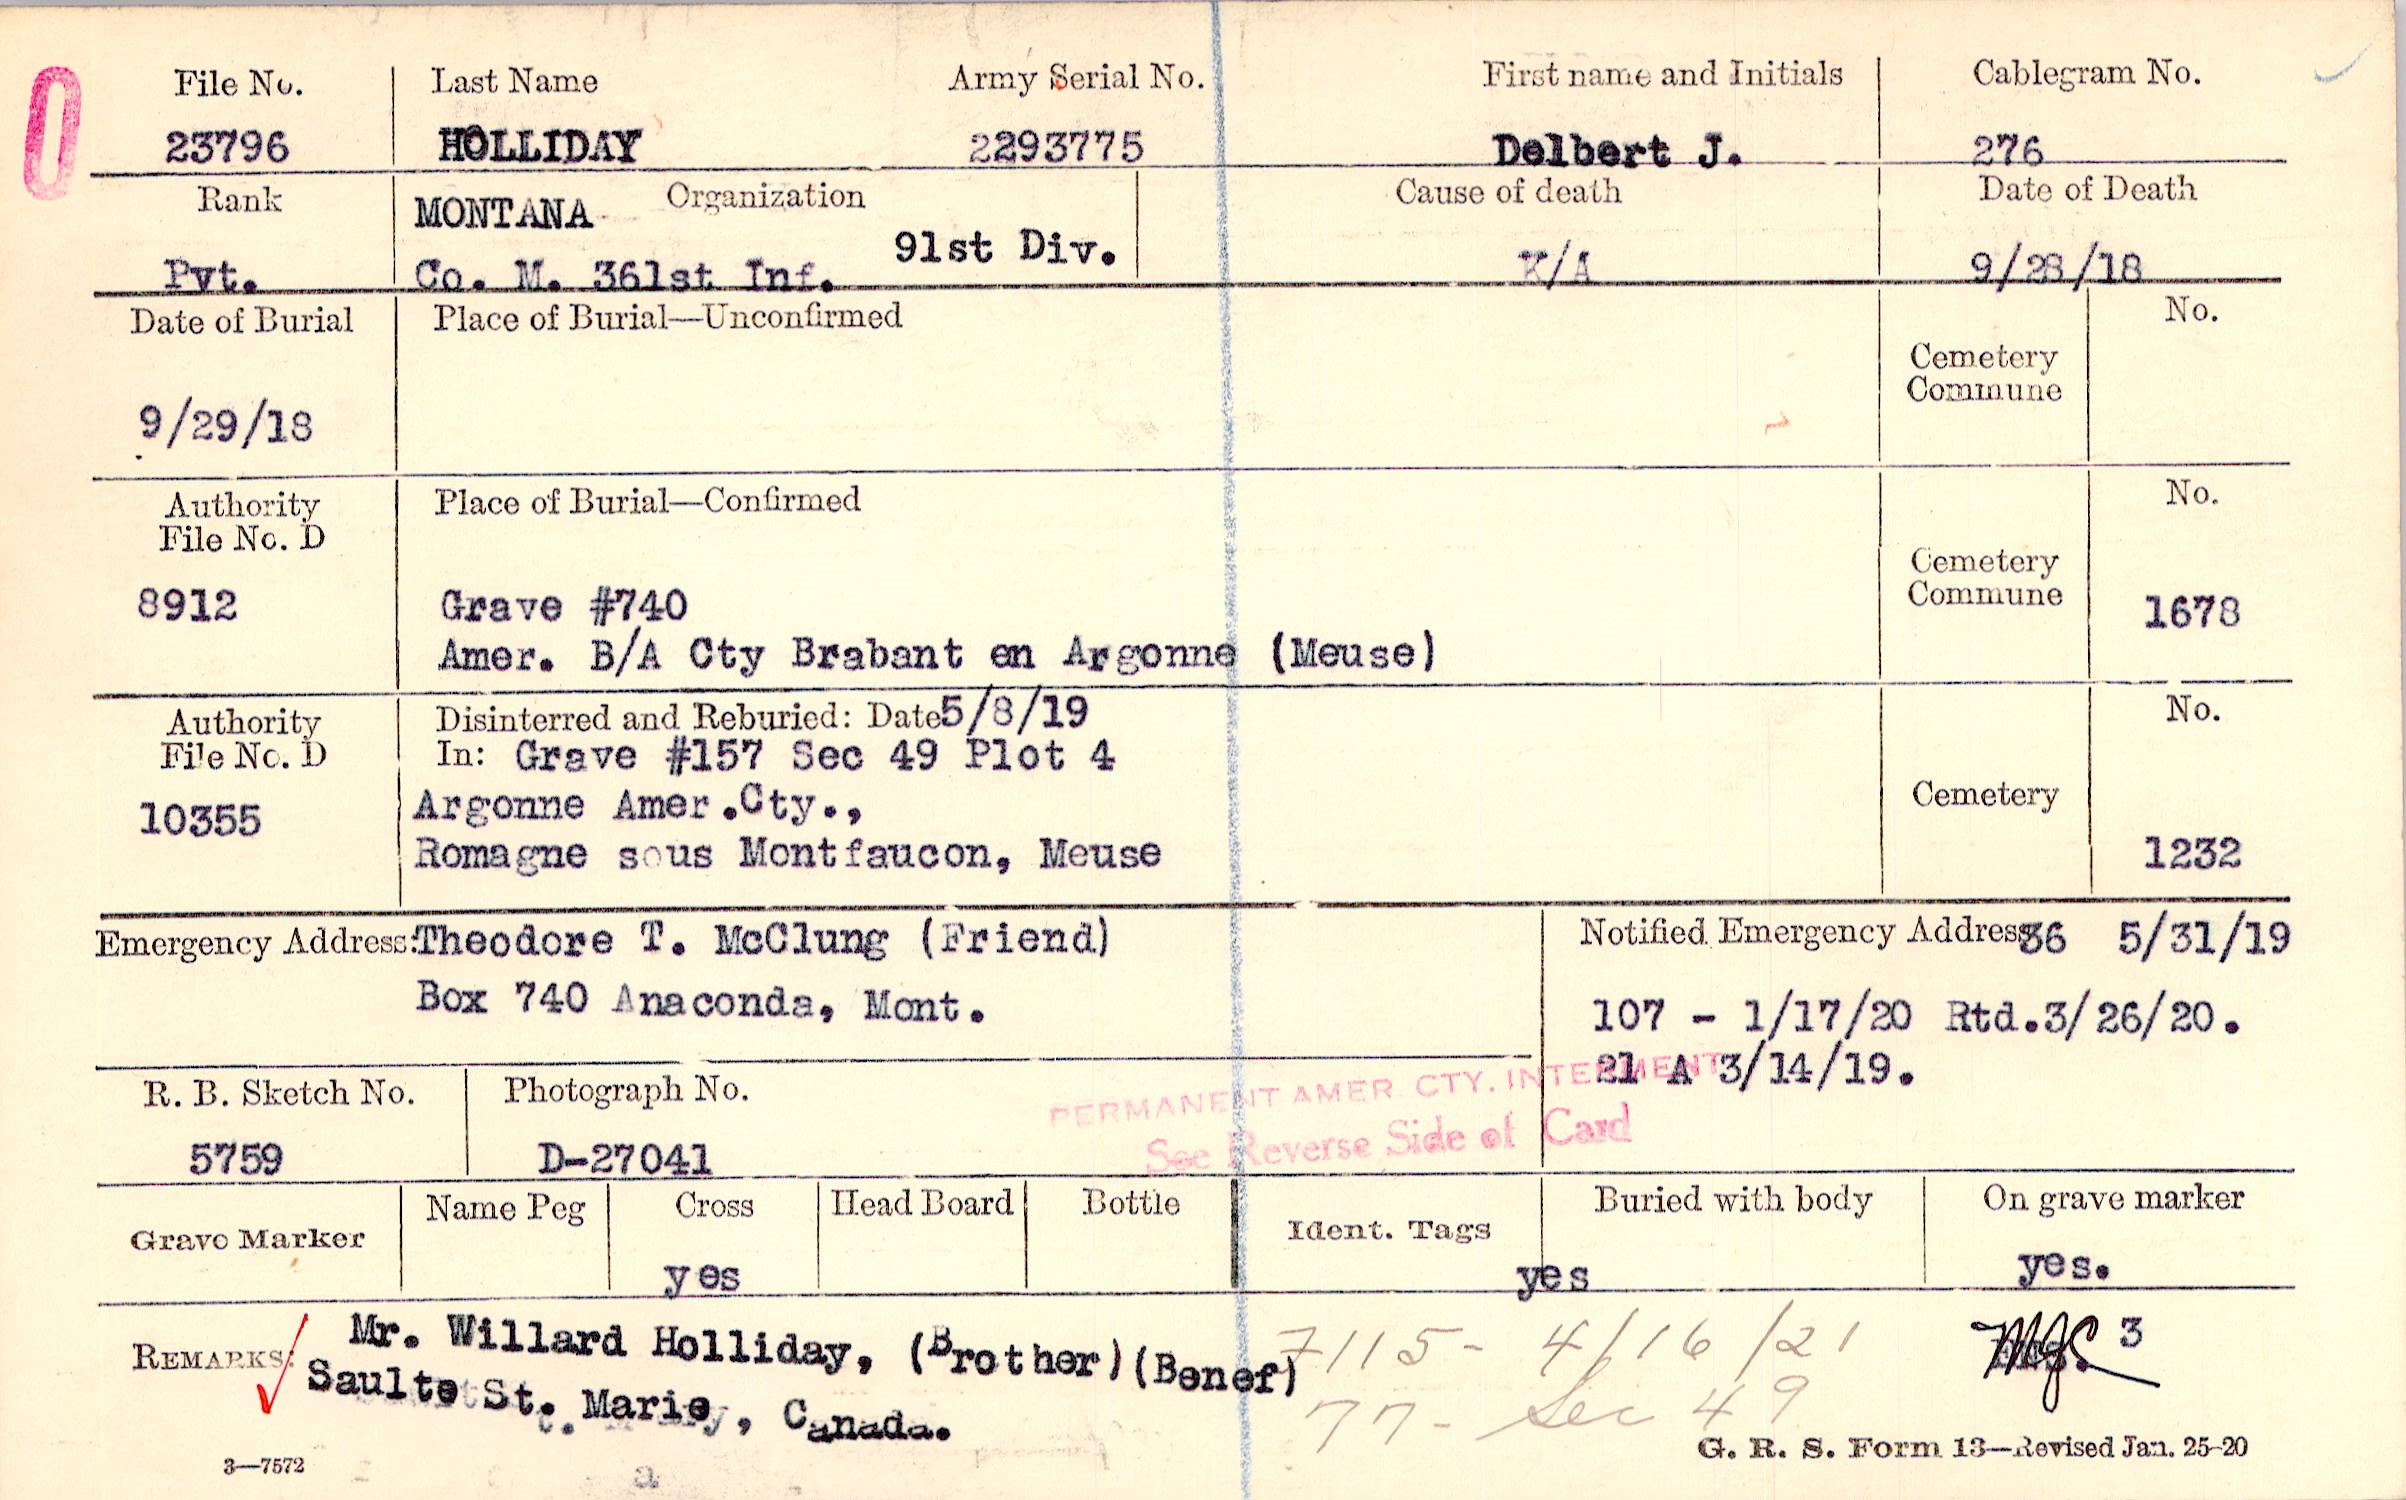 File No. Last Name Army Serial No. First name and Initials Cablegram No.
23796 HOLLIDAY 2293775 Delbert J. 276
Rank MONTANA Organization Cause of death Date of Death
91st Div.
Pvt. Co. M. 361st Inf. K/A 9/28/18
Date of Burial Place of Burial—Unconfirmed No.
Cemetery
Commune
9/29/18
Authority Place of Burial—Confirmed No.
File No. D
Cemetery
Commune
8912 Grave #740 1678
Amer. B/A Cty Brabant en Argonne (Meuse)
Authority Disinterred and Reburied: Date 5/8/19 No.
File No. D In: Grave #157 Sec 49 Plot 4
Cemetery
10355 Argonne Amer.Cty.,
Romagne sous Montfaucon, Meuse 1232
Emergency Address: Theodore T. McClung (Friend) Notified Emergency Address 36 5/31/19
Box 740 Anaconda, Mont. 107 - 1/17/20 Rtd.3/26/20.
21 A 3/14/19.
PERMANENT AMER. CTY. INTERMENT
See Reverse Side of Card
R. B. Sketch No. Photograph No.
5759 D-27041
Grave Marker Name Peg Cross Head Board Bottle Ident. Tags Buried with body On grave marker
yes yes yes.
REMARKS: Mr. Willard Holliday, (Brother)(Benef) 7115- 4/16/21 3
Saulte St. Marie, Canada. 77- Sec 49
G. R. S. Form 13—Revised Jan. 25-20
3—7572 a